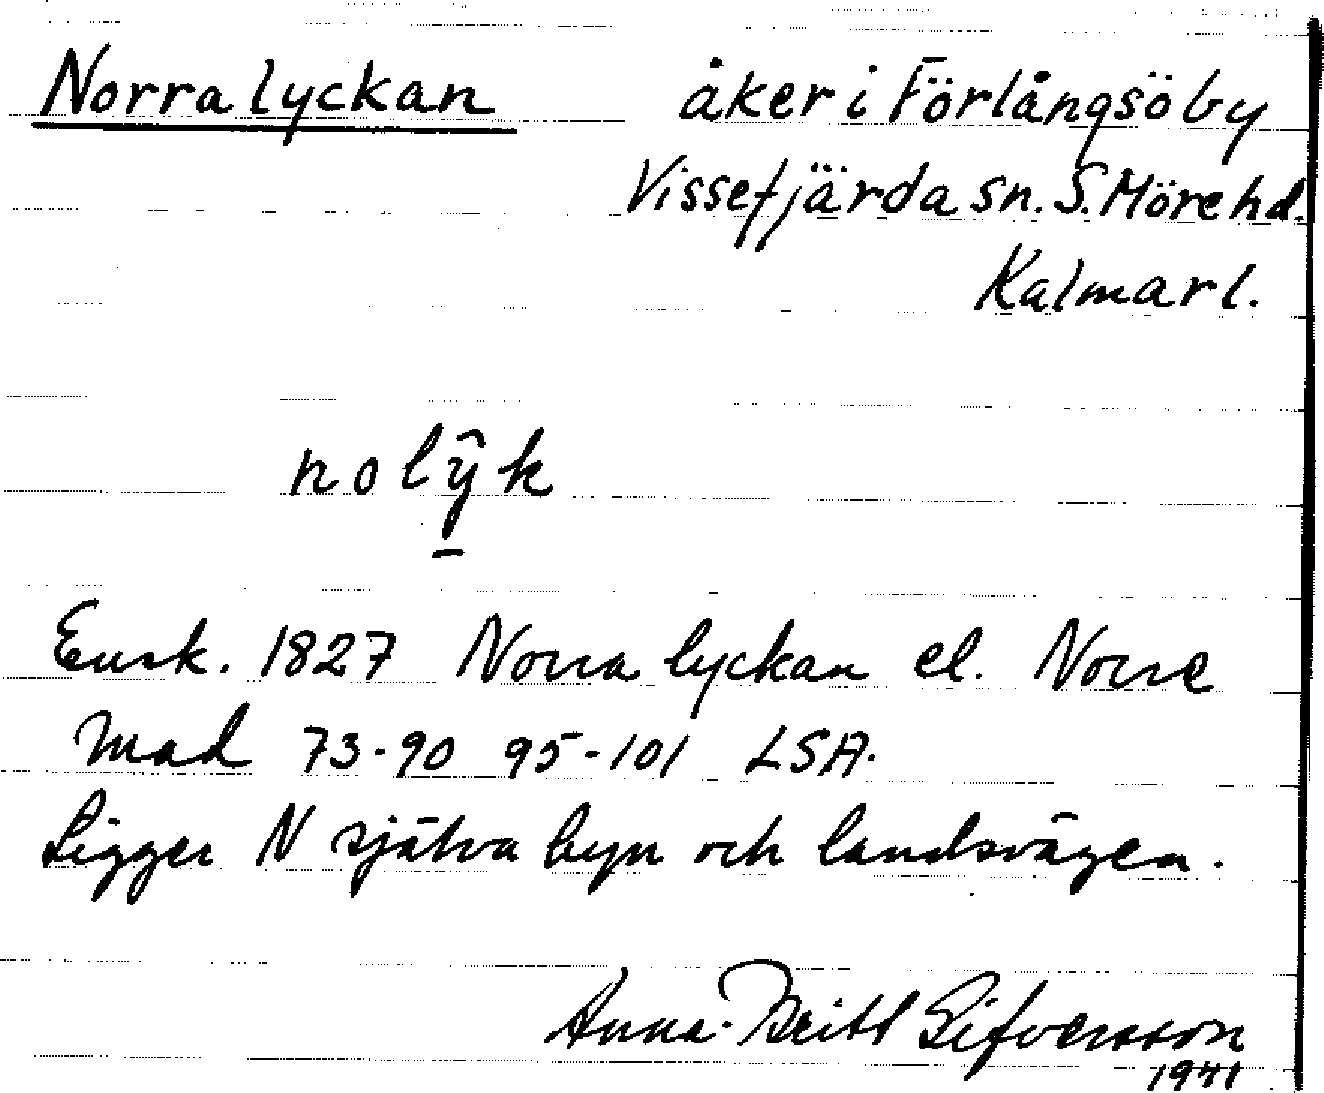 Norra lyckan åker i Förlångsö by
Vissefjärda sn. S. Möre hd.
Kalmar l.
nolŷk
Ensk. 1827 Norra lyckan el. Norre
mad 73-90 95-101 LSA.
Ligger N själva byn och landsvägen.
Anna-Britt Sifversson
1941